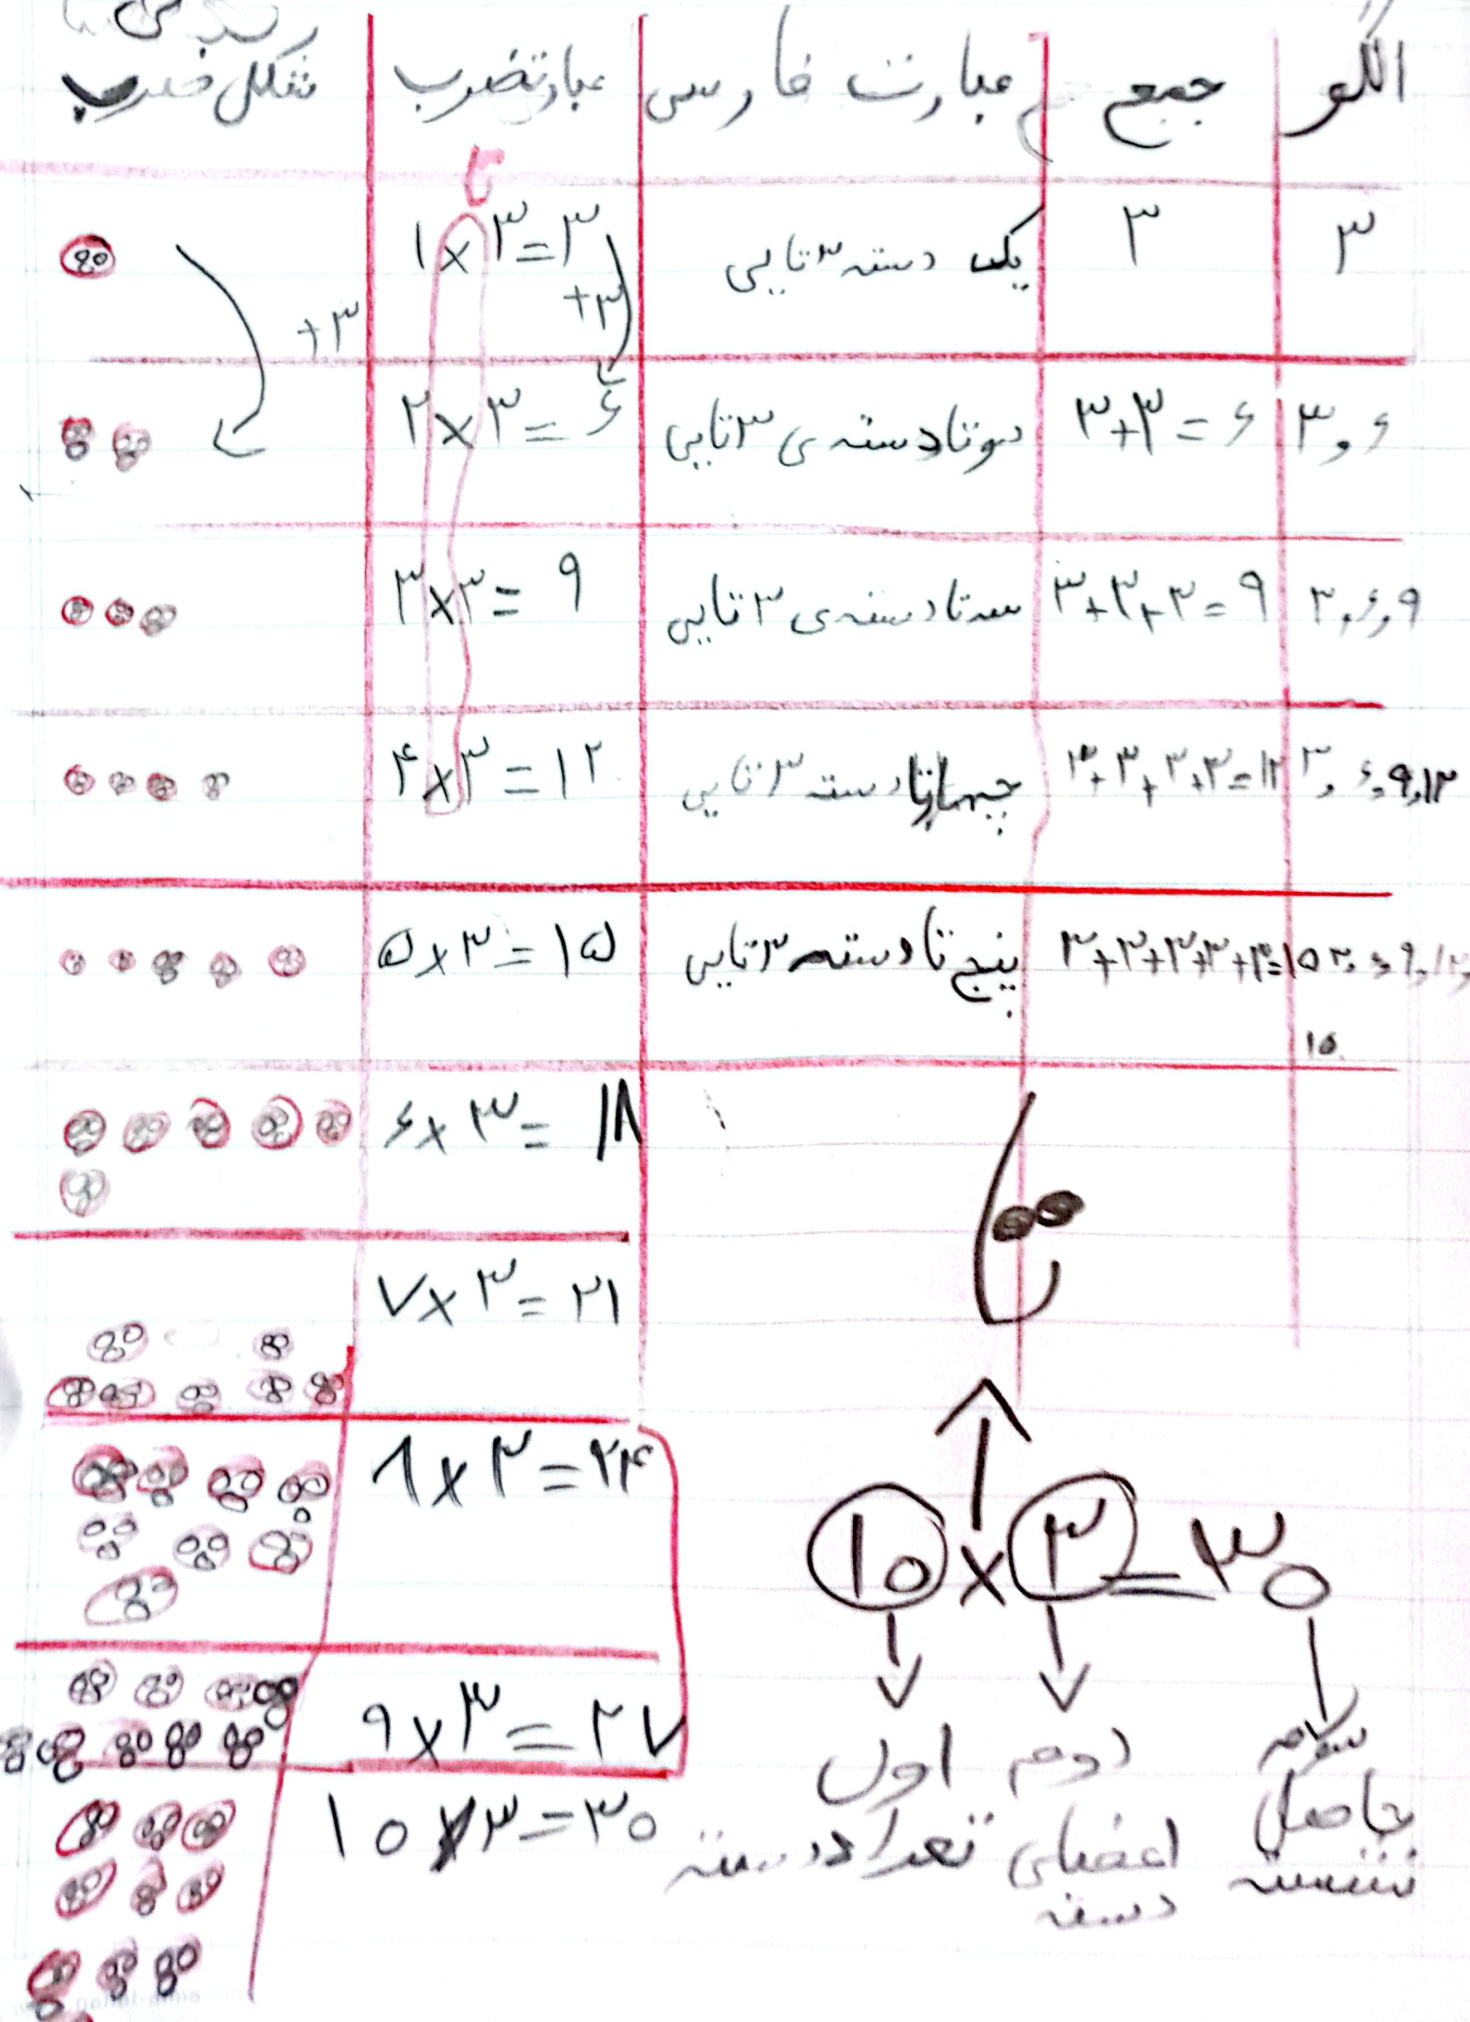 الگو جمع عبارت فارسی عبارت ضرب شکل ضرب
۳ ۳ یک دسته ۳ تایی ۱×۳=۳
+۳ +۳
۳,۶ ۳+۳=۶ دوتا دسته ی ۳ تایی ۲×۳=۶
۳,۶,۹ ۳+۳+۳=۹ سه تا دسته ی ۳ تایی ۳×۳=۹
۳,۶,۹,۱۲ ۳+۳+۳+۳=۱۲ چهارتا دسته ۳ تایی ۴×۳=۱۲
۳,۶,۹,۱۲, ۳+۳+۳+۳+۳=۱۵ پنج تا دسته ۳ تایی ۵×۳=۱۵
۱۵
۶×۳=۱۸
تا
۷×۳=۲۱
۸×۳=۲۴
۱۰×۳=۳۰
۹×۳=۲۷
اول دوم سوم
۱۰×۳=۳۰
تعداد دسته اعضای حاصل
دسته